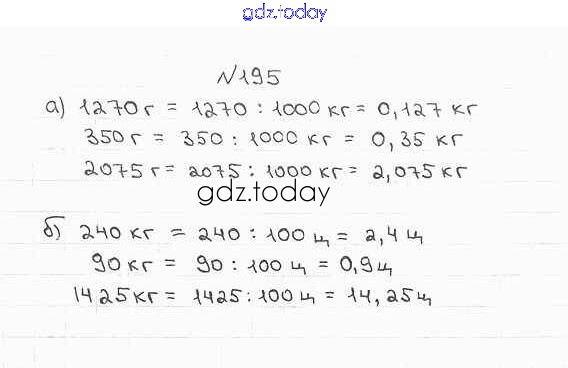 gdz.today
№195
а) 1270 г = 1270 : 1000 кг = 0,127 кг
350 г = 350 : 1000 кг = 0,35 кг
2075 г = 2075 : 1000 кг = 2,075 кг
gdz.today
б) 240 кг = 240 : 100 ц = 2,4 ц
90 кг = 90 : 100 ц = 0,9 ц
1425 кг = 1425 : 100 ц = 14,25 ц